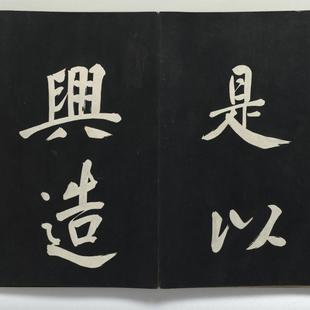 是以
興造